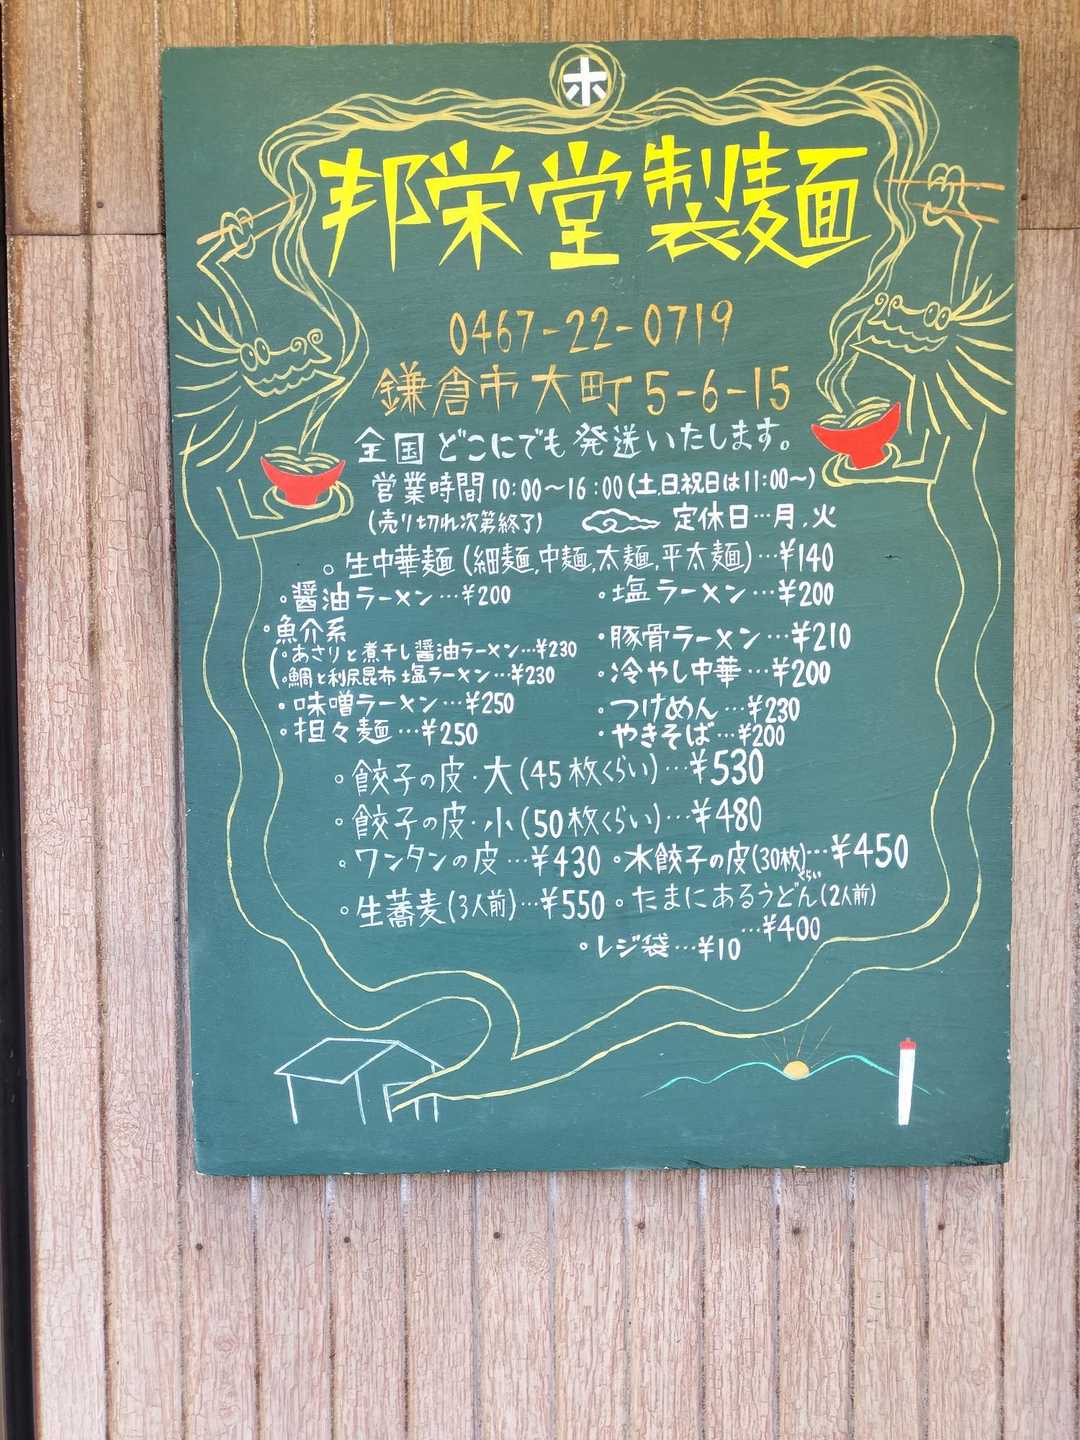 ホ
邦栄堂製麺
0467-22-0719
鎌倉市大町5-6-15
全国どこにでも発送いたします。
営業時間10:00~16:00(土,日祝日は11:00~)
(売り切れ次第終了) 定休日…月,火
。生中華麺(細麺,中麺,太麺,平太麺)…¥140
・醤油ラーメン…¥200 ・塩ラーメン…¥200
・魚介系
(・あさりと煮干し醤油ラーメン…¥230 ・豚骨ラーメン…¥210
・鯛と利尻昆布 塩ラーメン…¥230 ・冷やし中華…¥200
・味噌ラーメン…¥250 ・つけめん…¥230
・担々麺…¥250 ・やきそば…¥200
。餃子の皮・大(45枚くらい)…¥530
。餃子の皮・小(50枚くらい)…¥480
・ワンタンの皮…¥430 ・水餃子の皮(30枚くらい)…¥450
・生蕎麦(3人前)…¥550 ・たまにあるうどん(2人前)
…¥400
・レジ袋…¥10